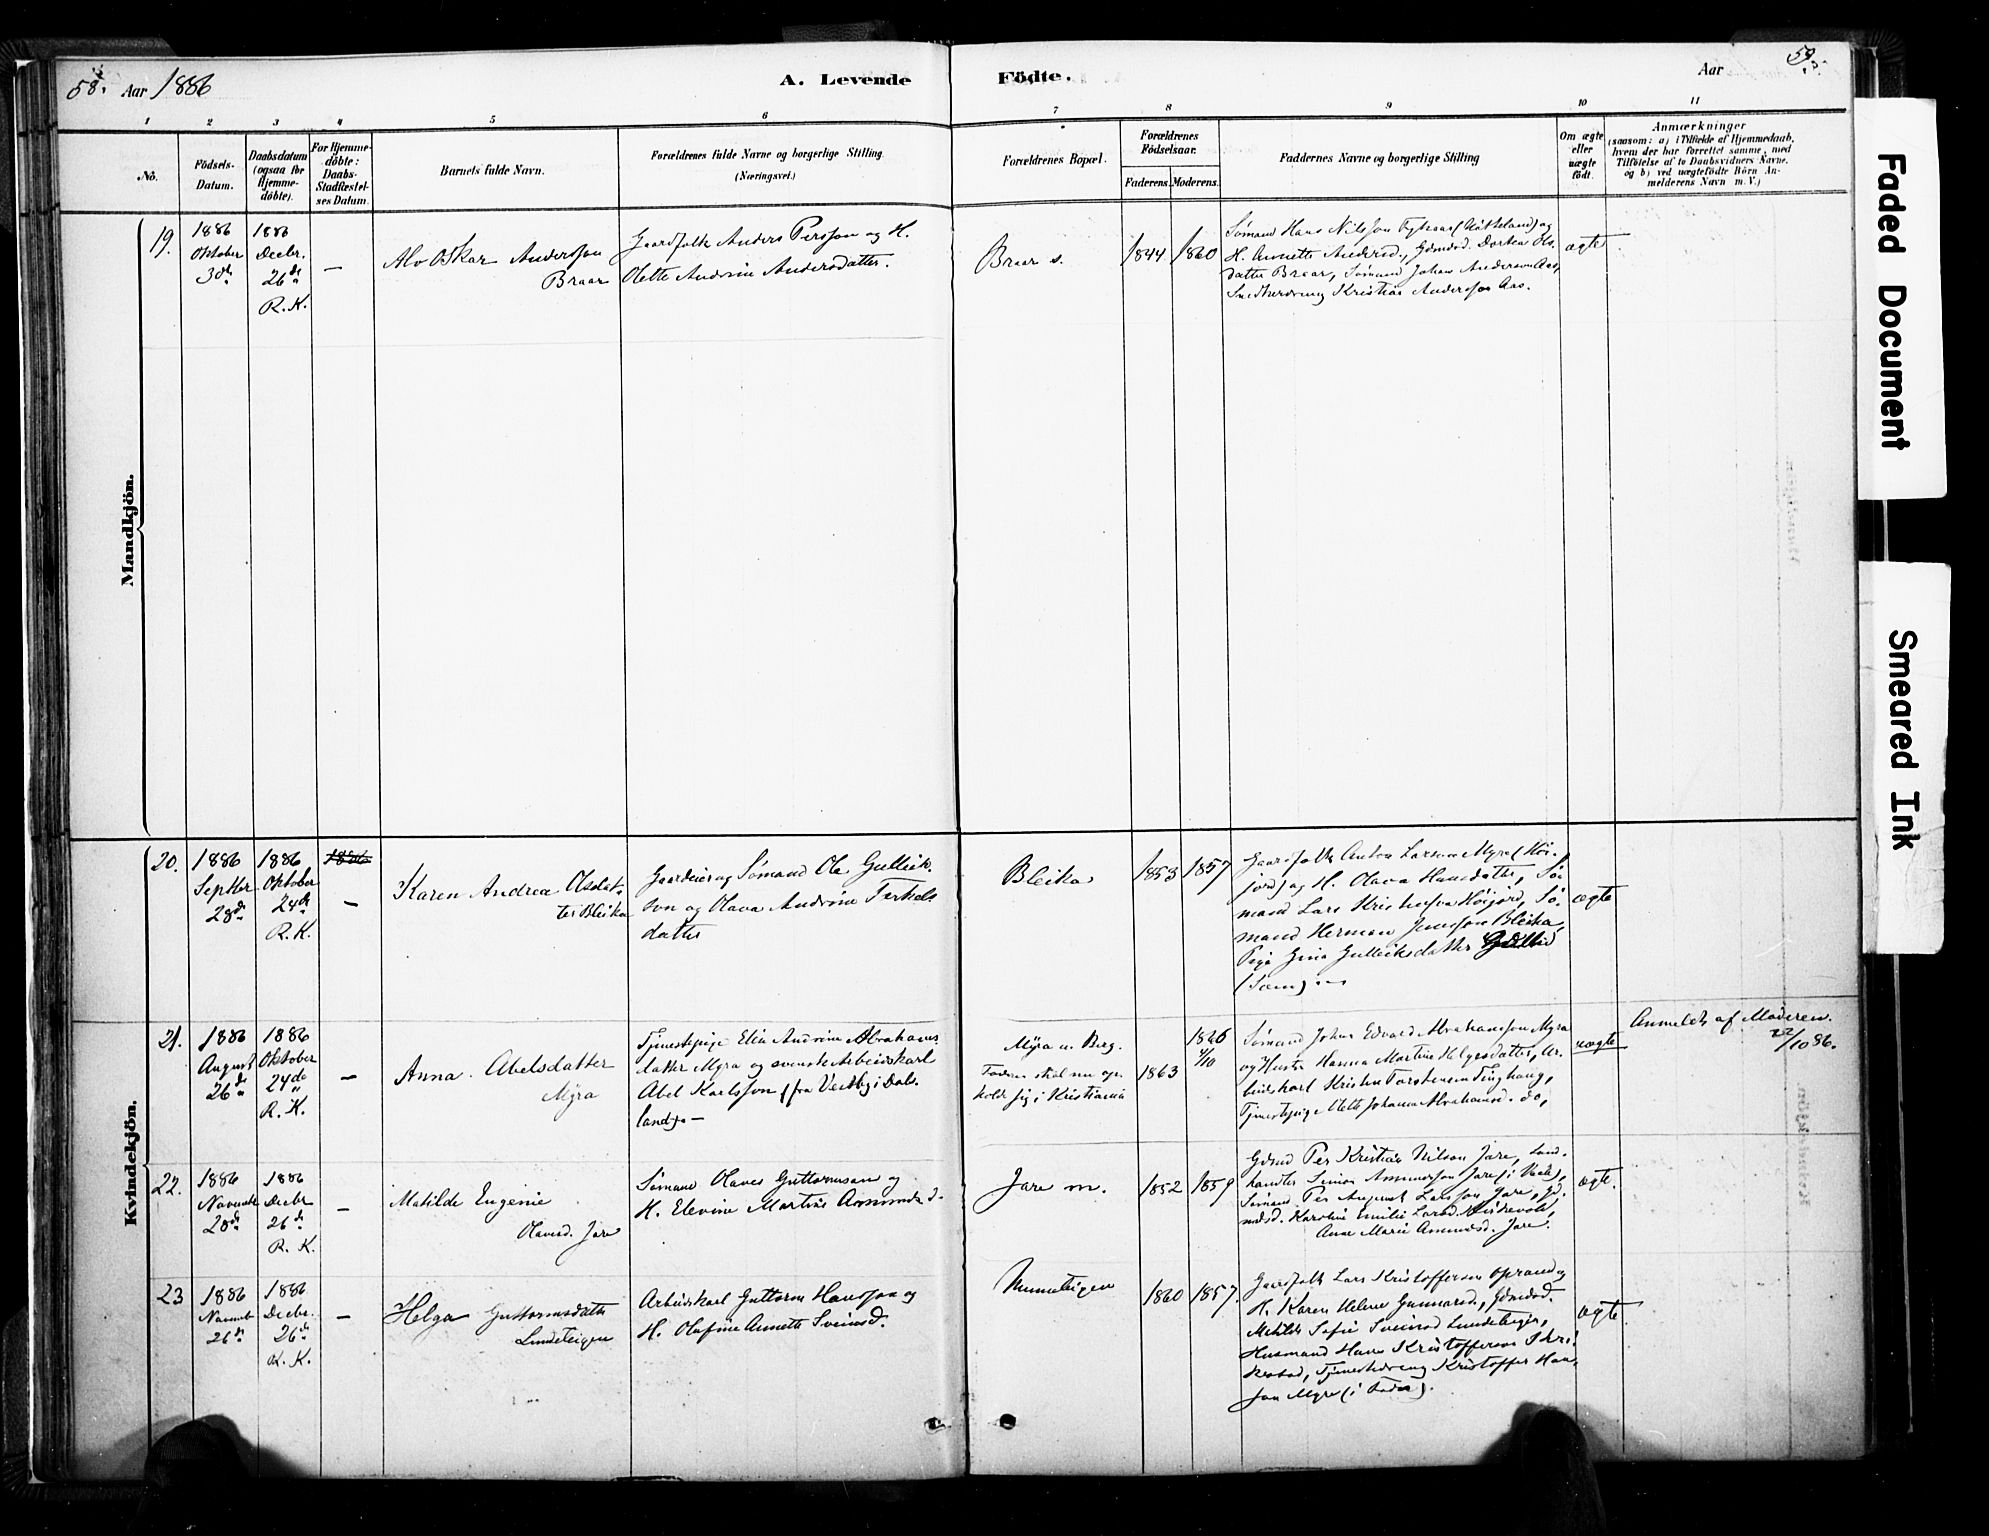 58.
Aar 1886
A. Levende
Födte.
Aar
59.
1
2
3
4
5
6
7
8
9
10
11
No.
Födsels-
Datum.
Daabsdatum
(ogsaa for
Hjemme-
döbte).
For Hjemme-
döbte:
Daabs-
Stadfæstel-
ses Datum.
Barnets fulde Navn.
Forældrenes fulde Navne og borgerlige Stilling
(Næringsvei.)
Forældrenes Bopæl.
Forældrenes
Födselsaar.
Faderens.
Moderens.
Faddernes Navne og borgerlige Stilling
Om ægte
eller
uægte
födt.
Anmærkninger
(saasom: a) i Tilfælde af Hjemmedaab,
hvem der har forrettet samme, med
Tilföielse af to Daabsvidners Navne,
og b) ved uægtefödte Börn An-
melderens Navn m. V.)
Mandkjön.
19.
1886
Oktober
3de
1886
Decbr.
26de
R. K.
—
Alv Oskar Anderssøn
Braar
Gaardfolk Anders Perssøn og H.
Olette Andrine Andersdatter.
Braar s.
1844
1860
Sømand Hans Nilssøn
og
H. Annette Andersd., Gdmdsd. Dortea Ols-
datter Braar, Sømand Johan Anderssøn Aas,
Snedkerdreng Kristian Anderssøn Aas.
ægte
Kvindekjön.
20.
1886
Septbr
28de
1886
Oktober
24de
R. K.
1886
—
Karen Andrea Olsdat-
ter Bleika
Gaardeier og Sømand Ole Gulliek-
søn og Olava Andrine Terkels
datter
Bleika
1853
1857
Gaardfolk Anton Larssøn Myre (Høi-
jord) og H. Olava Hansdatter, Sø-
mand Lars Kristensøn Høijord, Sø-
mand Herman Jenssøn Bleika,
Pige Gina Gullieksdatter
(Søem).
ægte
21.
1886
August
26de
1886
Oktober
24de
R. K.
—
Anna Abelsdatter
Myra
Tjenestepige Elen Andrine Abrahams
datter Myra og svenske Arbeidskarl
Abel Karlssøn (fra Vestby i Dals-
land).—
Myra u. Berg.
Faderen skal nu op-
holde sig i Kristiania
1863
1866
4/10
Sømand Johan Edvard Abrahamssøn Myra
og Hustru Hanna Martine Helgesdatter, Ar-
beidskarl Kristen Torstensen
Tjenestepige Mette Johanna Abrahamsd. do,
uægte
Anmeldt af Moderen.
22/10 86.
22.
1886
Novembr
28de
1886
Decbr
26de
R. K.
—
Matilde Eugenie
Olavesd. Jare
Sømand Olaves Guttormssøn og
H. Elevine Martine Ammunds d.
Jare m.
1852
1859
Gdmd Per Kristian Nilsen Jare, Land-
handler Simon Ammunssøn Jare
Sømand Per August Larssøn Jare, Gd.
mdsd. Karoline Emilie Larsd.
Anne Marie Ammundsd. Jare.
ægte.
23
1886
Novemb
26de
1886
Decbr.
26de
R. K.
—
Helga Guttormsdatter
Lindeteigen
Arbeidskarl Guttorm Hanssøn og
H. Olufine Annette Sveinsd.
1860
1857.
Gaardfolk Lars Kristoffersen Oprand og
H. Karen Helene Gunnarsd., Gdmdsd.
Matilde Sofie Sveinsd Lundeteigen,
Husmand Hans Kristoffersen
Tjenestedreng Kristoffer Han-
søn Myre
ægte
Faded Document
Smeared Ink